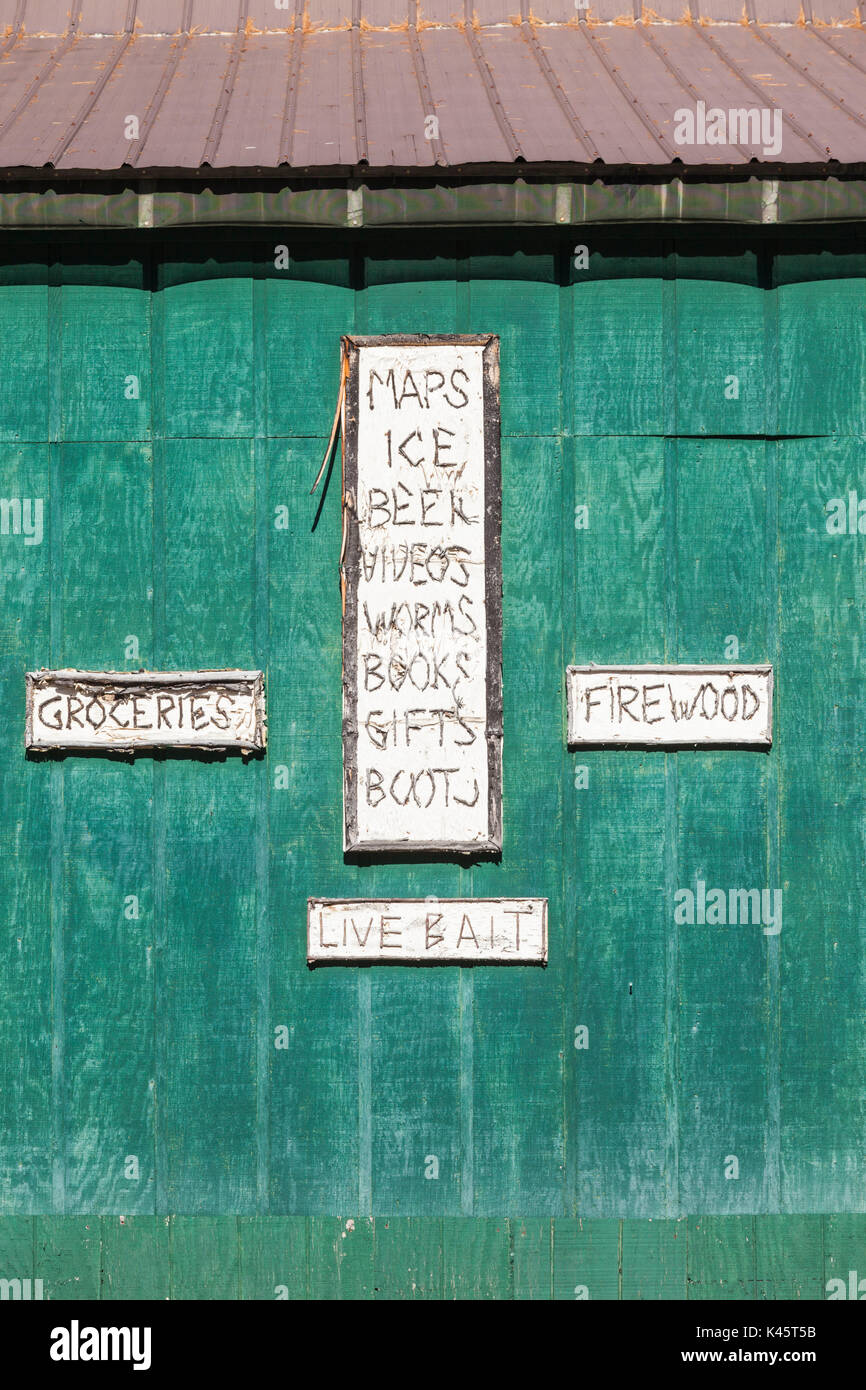 MAPS
ICE
BEER
VIDEOS
WORMS
BOOKS
GIFTS
BOOTS
GROCERIES
FIREWOOD
LIVE BAIT
alamy
alamy
Image ID: K45T5B
www.alamy.com